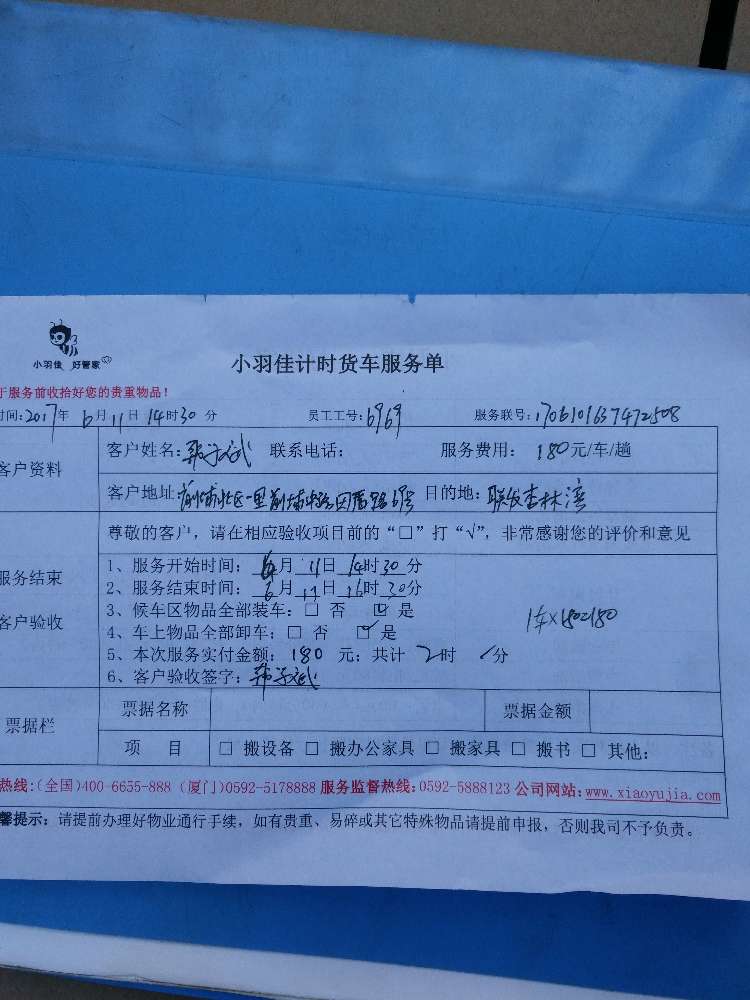 小羽佳 好管家
小羽佳计时货车服务单
于服务前收拾好您的贵重物品！
时间:2017年 6月11日 14时30分 员工工号:6969 服务联号:1706101637472508
客户资料
客户姓名: 联系电话: 服务费用: 180元/车/趟
客户地址: 目的地: 联发杏林湾
尊敬的客户，请在相应验收项目前的“□”打“√”，非常感谢您的评价和意见
服务结束
客户验收
1、服务开始时间: 6月11日14时30分
2、服务结束时间: 6月11日16时30分
3、候车区物品全部装车: □ 否 ☑ 是
4、车上物品全部卸车: □ 否 ☑ 是
1车×180=180
5、本次服务实付金额: 180 元; 共计 2时 /分
6、客户验收签字:
票据栏
票据名称 票据金额
项 目 □ 搬设备 □ 搬办公家具 □ 搬家具 □ 搬书 □ 其他:
热线:(全国)400-6655-888 (厦门)0592-5178888 服务监督热线:0592-5888123 公司网站:www.xiaoyujia.com
馨提示: 请提前办理好物业通行手续，如有贵重、易碎或其它特殊物品请提前申报，否则我司不予负责。